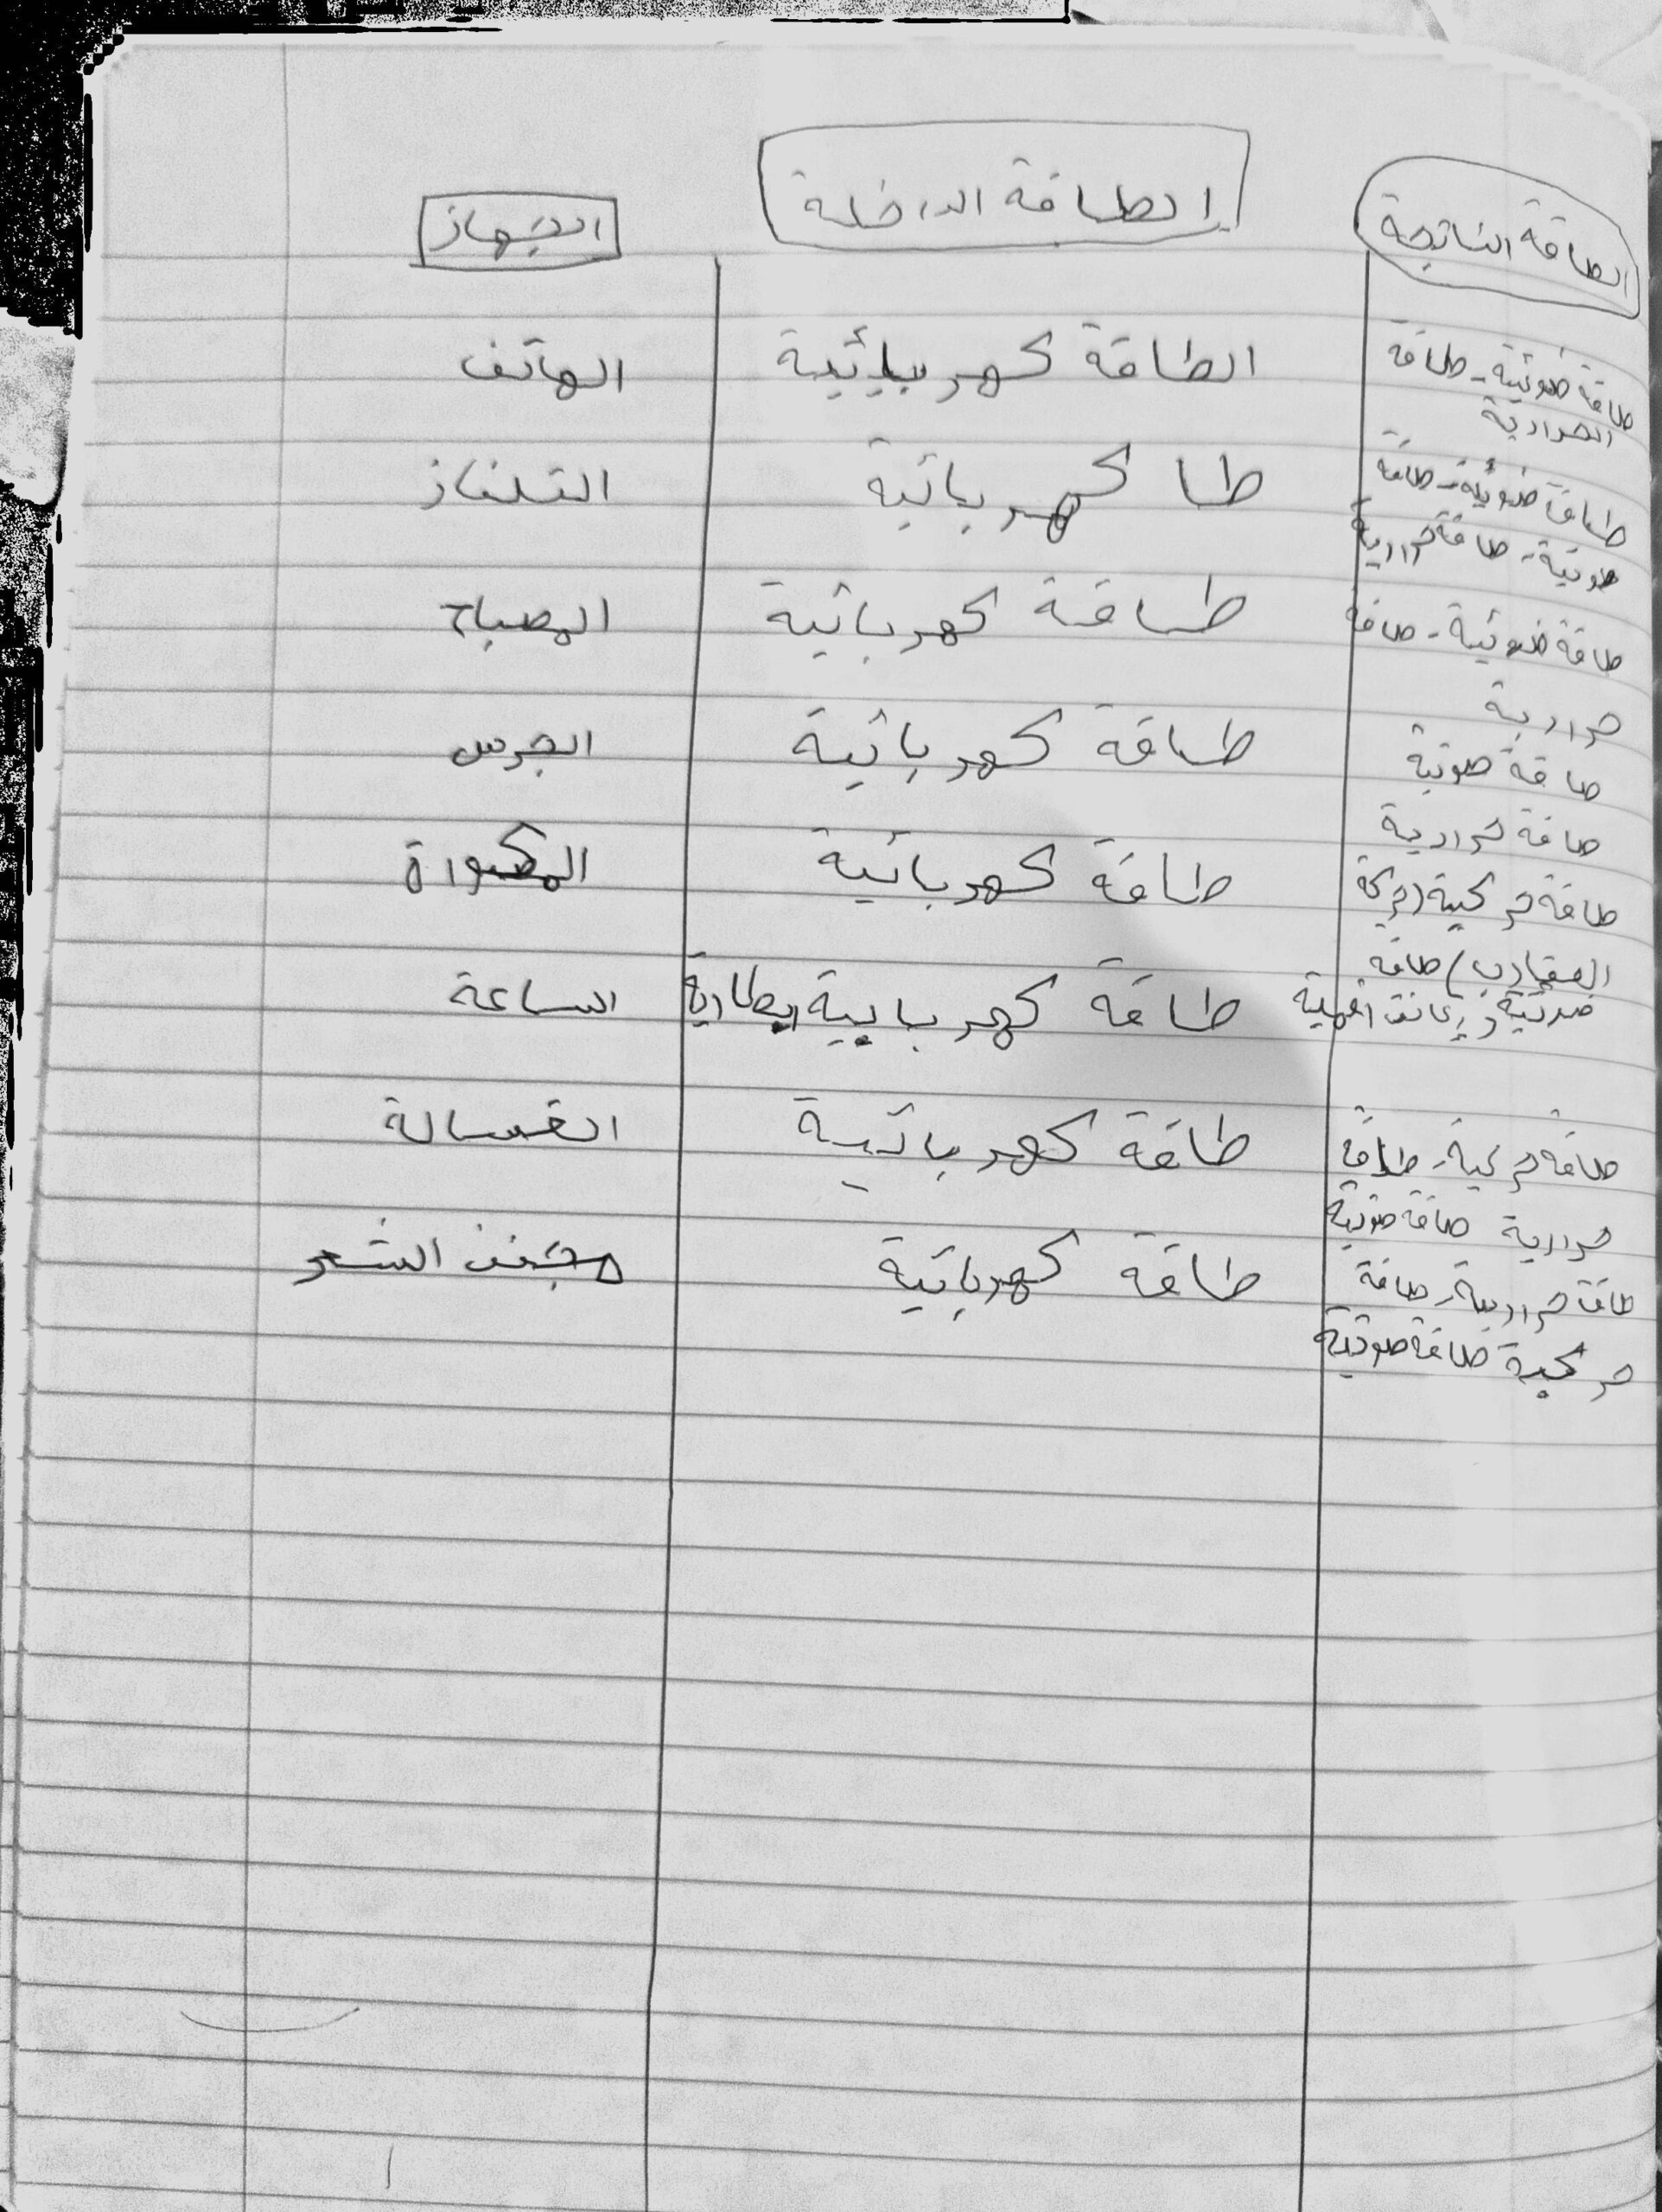 الطاقة الناتجة
الطاقة الداخلة
الجهاز
طاقة ضوئية - طاقة
الحرارية
الطاقة كهربائية
الهاتف
طاقة ضوئية - طاقة
صوتية - طاقة حرارية
طا كهربائية
التلفاز
طاقة ضوئية - طاقة
حرارية
طاقة كهربائية
المصباح
طاقة صوتية
طاقة كهربائية
الجرس
طاقة حرارية
طاقة كهربائية
المكواة
طاقة حركية (حركة
العقارب) طاقة
ضوئية
طاقة كهربايية ابطارية
الساعة
طاقة حركية - طاقة
حرارية طاقة صوتية
طاقة كهربائية
الغسالة
طاقة حرارية - طاقة
حركية طاقة صوتية
طاقة كهربائية
مجفف الشعر